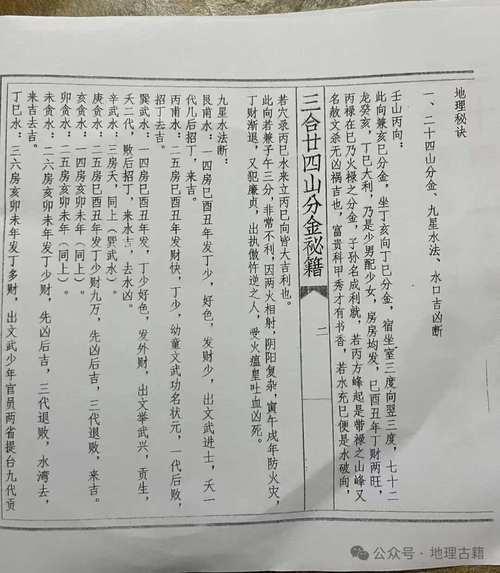 地理秘诀
一、二十四山分金、九星水法、水口吉凶断
壬山丙向：
此向兼亥巳分金，坐丁亥向丁巳分金，宿坐室三度向翌三度，七十二
龙癸亥，丁巳大利，乃是少男配少女，房房均发，巳酉丑年丁财两旺，
丙禄在巳乃火禄之分金，子孙名成利就，若丙方峰起是带禄之山峰又
名赦文杀无凶祸吉也，富贵科甲秀才有书香，若水充巳便是水破向，
三合廿四山分金祕籍
二
若穴录丙巳水来立丙巳向皆大吉利也。
此向若兼子午三分，非常不利，因两火相射，阴阳复杂，寅午戌年防火灾，
丁财渐退，又犯廉贞，出执傲忤逆之人，受火瘟皇吐血凶死。
九星水法断：
艮甫水：一四房巳酉丑年发丁少，好色，发财少，出文武进士，夭一
代儿后招丁，来吉。
丙甫水：二五房巳酉丑年发财快，丁少，幼童文武功名状元，一代后败，
招丁去吉。
巽武水：一四房巳酉丑年发，丁少好色，发外财，出文举武兴，贡生，
夭二代，败后招丁，来水吉，去水凶。
辛武水：三房夭，同上（巽武水）。
庚贪水：二五房巳酉丑年发丁少财九万，先凶后吉，三代退败，来吉。
亥贪水：一四房亥卯未年（同上）。
卯贪水：二五房亥卯未年（同上）。
未贪水：二六房亥卯未年发丁少财，先凶后吉，三代退败，水湾去，
来吉去吉。
丁巳水：三六房亥卯未年发丁多财，出文武少年官员两省提台九代贡
公众号·地理古籍